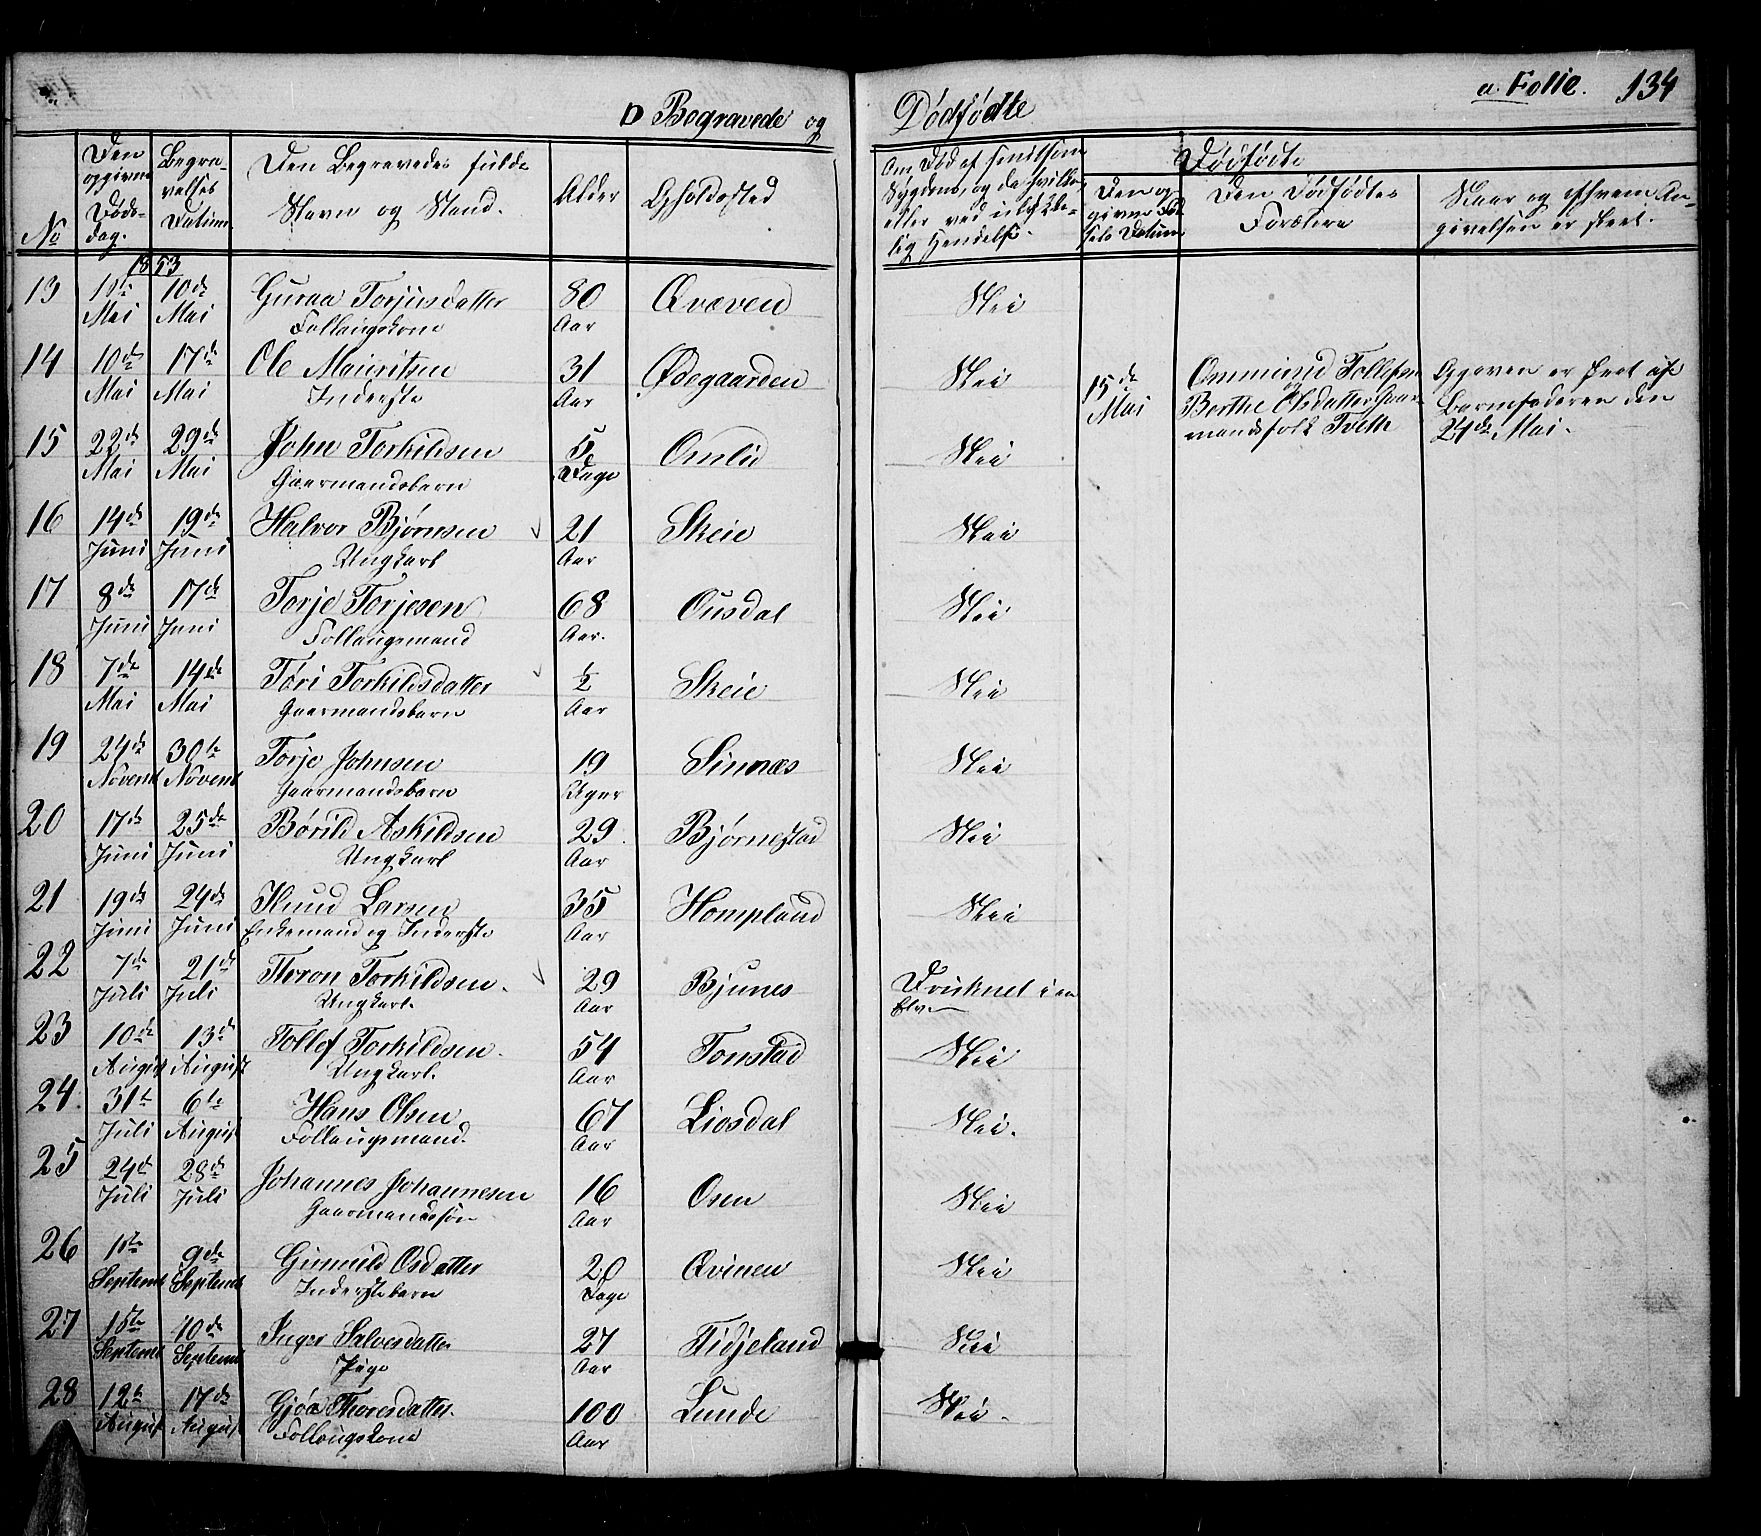 D Begravede og Dødfødte a. Folie. 134
No
Den opgivne Døds-dag.
Begra-velses Datum
Den Begravedes fulde Navn og Stand.
Alder
Opholdssted
Om Død af smitsom Sygdom, og da hvilken eller ved ulykke-lig Hendelse.
Dødfødte
Den op-givne Fød-sels Datum
Den Dødfødtes Forældre
Naar og til hvem An-givelsen er skeet.
1853
13 1ste Mai 10de Mai Guraa Torjusdatter 80 Aar Qvæven Nei
Føllaugskone
14 10de Mai 17de Mai Ole Mauritsen 31 Aar Ødegaarden Nei
Inderste
15de Mai Ommund Tollefsen og Berthe Olsdatter Gaar-mandsfolk Tveth
Opgaven er skeet af Barnefaderen den 24de Mai.
15 22de Mai 29de Mai John Torkildsen 5 Dage Omlid Nei
Gaarmandsbarn
16 14de Juni 19de Juni Halvor Bjørnsen 21 Aar Skeie Nei
Ungkarl
17 8de Juni 17de Juni Torje Torjesen 68 Aar. Ousdal Nei
Føllaugsmand
18 7de Mai 14de Mai Tøri Torkildsdatter ½ Aar Skeie Nei
Gaarmandsbarn
19 24de Novemb 30te Novemb Torje Johnsen 19 Uger Sinnæs Nei
Gaarmandsbarn
20 17de Juni 25de Juni Børild Askildsen 29 Aar Bjørnestad Nei
Ungkarl
21 19de Juni 24de Juni Knud Larsen 35 Aar Hompland Nei
Enkemand og Inderste
22 7de Juli 21de Juli Theron Torkildsen. 29 Aar Bjunes Drucknet i en Elv
Ungkarl.
23 10de August 13de August Tollef Torkildsen. 54 Aar Tonstad Nei
Ungkarl.
24. 31te Juli 6te August Hans Olsen 67 Aar Liosdal Nei.
Føllaugsmand.
25 24de Juli 28de Juli Johannes Johannesen 16 Aar Osen Nei
Gaarmandssøn
26 1ste Septemb 9de Septemb Gunnild Osdatter 20 Dage Qvinen Nei
Inderstebarn
27 1ste Septemb 10de Septemb Inger Salvesdatter 27 Aar Fidjeland Nei
Pige
28 12te August 17de August Gjøa Thoresdatter. 100 Aar Lunde Nei.
Føllaugskone